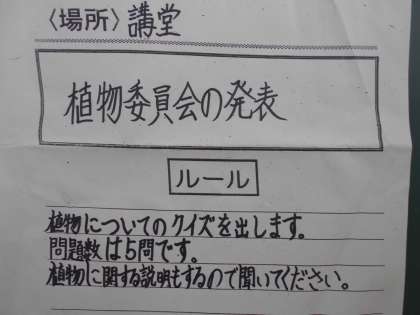 〈場所〉講堂
植物委員会の発表
ルール
植物についてのクイズを出します。
問題数は5問です。
植物に関する説明もするので聞いてください。